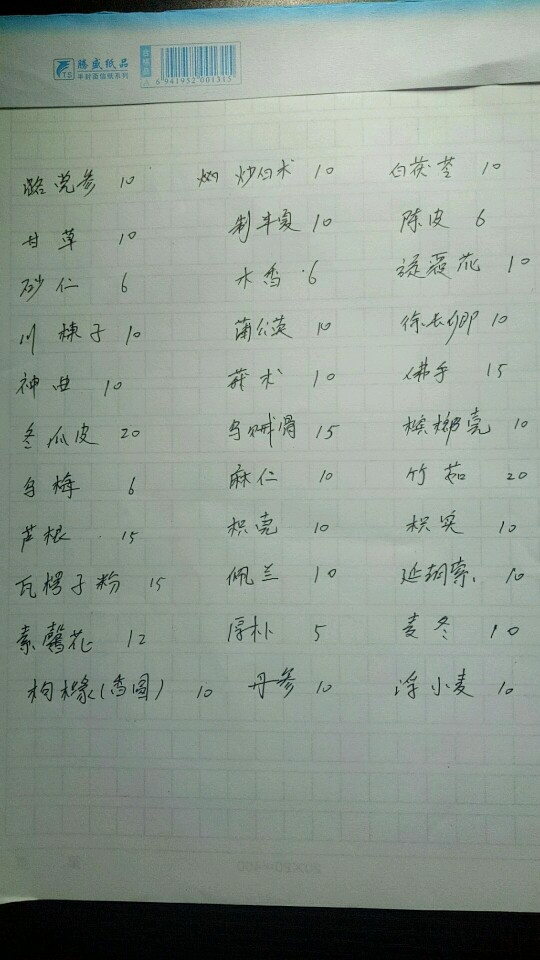 腾盛纸品
TS 丰封面信纸系列
合格品
6 941952 001315
潞党参 10 炒白术 10 白茯苓 10
甘草 10 制半夏 10 陈皮 6
砂仁 6 木香 6 绿萼花 10
川楝子 10 蒲公英 10 徐长卿 10
神曲 10 莪术 10 佛手 15
冬瓜皮 20 乌贼骨 15 槟榔壳 10
乌梅 6 麻仁 10 竹茹 20
芦根 15 枳壳 10 枳实 10
瓦楞子粉 15 佩兰 10 延胡索 10
素馨花 12 厚朴 5 麦冬 10
枸橼(香圆) 10 丹参 10 浮小麦 10
20X20=400